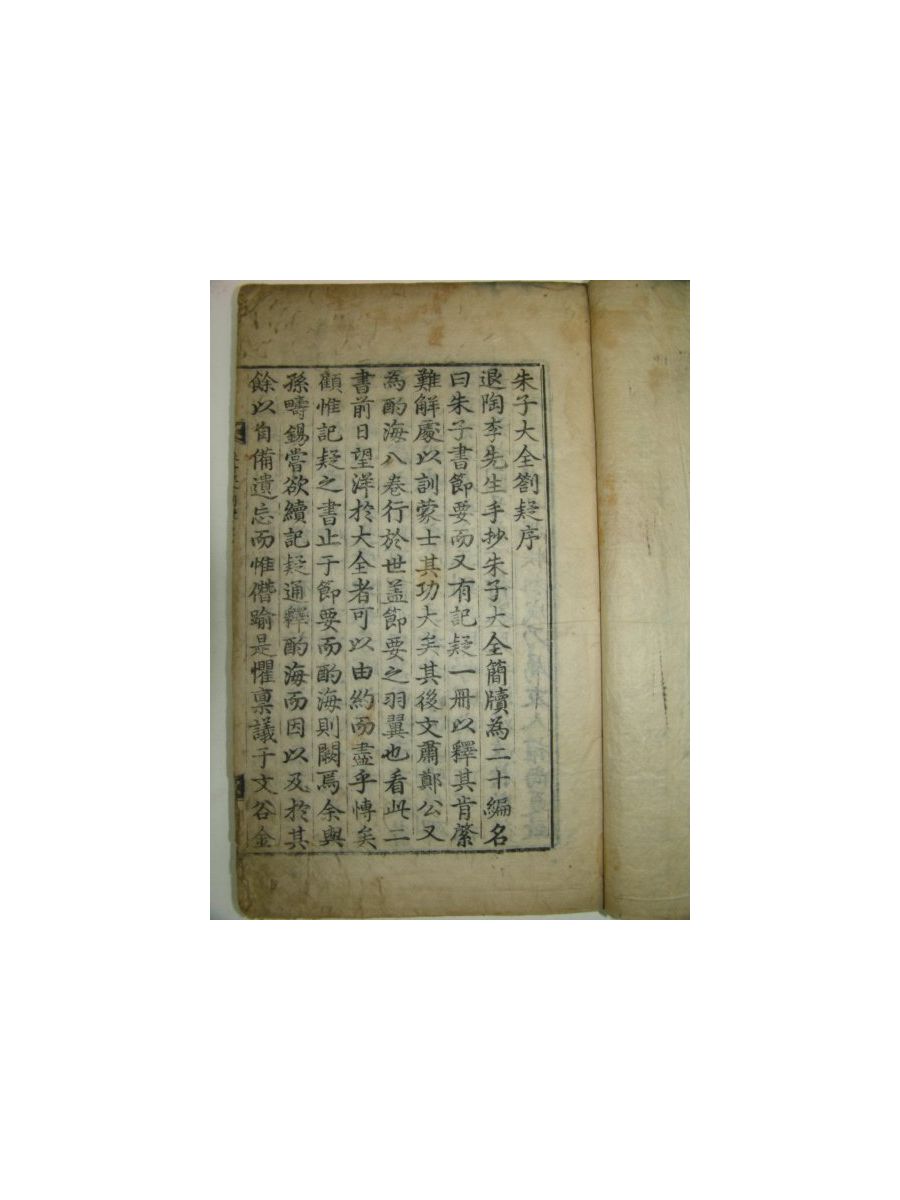 朱子大全劄疑序
退陶李先生手抄朱子大全簡牘為二十編名
曰朱子書節要而又有記疑一冊以釋其肯綮
難解處以訓蒙士其功大矣其後文肅鄭公又
為酌海八卷行於世盖節要之羽翼也看此二
書前日望洋於大全者可以由約而盡乎慱矣
顧惟記疑之書止于節要而酌海則闕焉余與
孫疇錫嘗欲續記疑通釋酌海而因以及於其
餘以自備遺忘而惟僭踰是懼禀議于文谷金